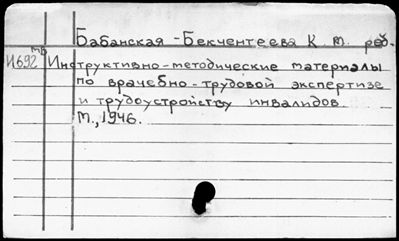 Бабанская-Бекчентеева К. т. ред.
тв
И692 Инструктивно-методические материалы
по врачебно-трудовой экспертизе
и трудоустройству инвалидов
т., 1946.